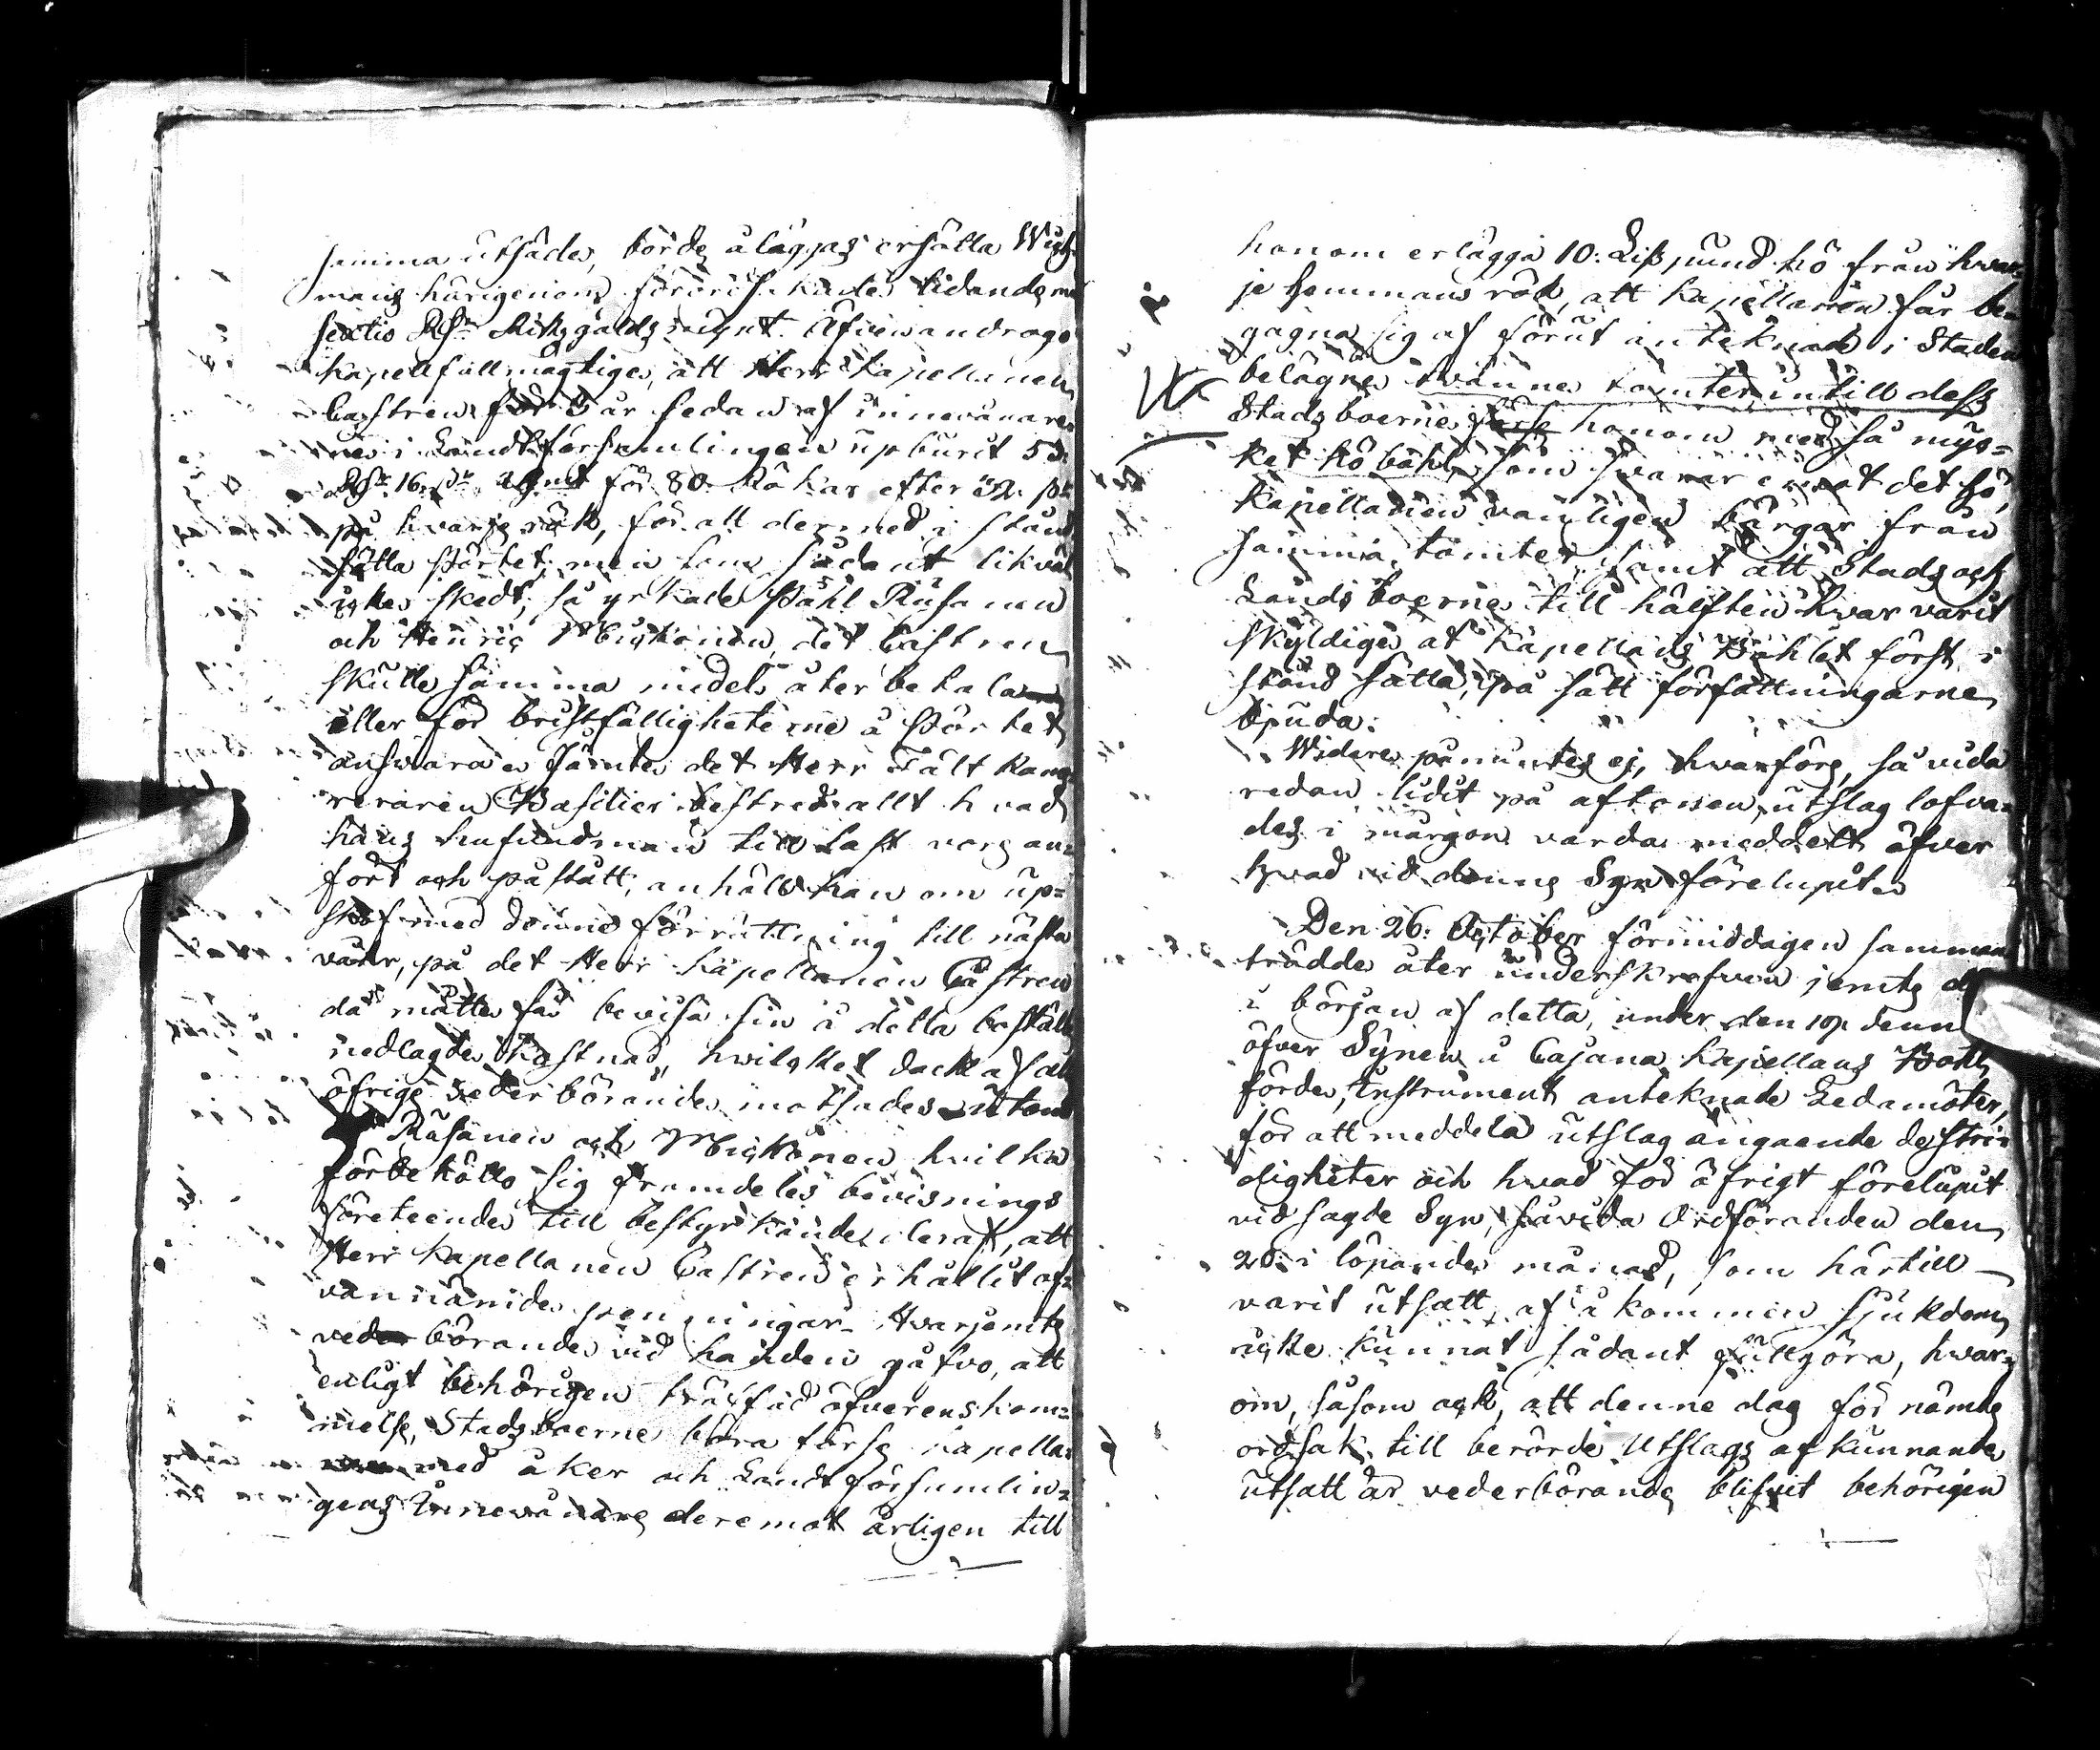 samma utsäde, borde åläggas ersätta Wich-
mans härigenom förorsakade lidande med
sextio Rdr Riksgälds mynt. Äfven androgo
kapellfullmägtige, att Herr Kapellanen
Castren för 5 år sedan af innevånare
ne i Landtförsamlingen upburit 53.
Rdr 16. sk. Rgmt för 80. Rökar efter 32. sk.
på hvarje rök, för att dermed i stånd
sätta Pörtet, men som sådant likväl
icke skedt, så yrkade Påhl Räsanen
och Henric Mickonen, det Castren
skulle samma medel återbetala
eller för bristfälligheterne å Pörtet
answara. Jämte det Herr Fält Kame-
reraren Basilier bestred allt hvad
hans hufvudman till last vore an-
fört och påstått, anhöll han om up-
skof med denne förrättning till nästa
vår, på det Herr Kapellanen Castren
då måtte få bevisa sin å detta boställe
nedlagde kostnad, hvilcket dock af de
öfrige vederbörande motsades utom
Räsänen och Mickonen hvilka
förbehöllo sig framdeles bevisnings
företeende till bestyrkande deraf, att
Herr Kapellanen Castren erhållit of-
vannämde penningar. Hvarjemte
vederbörande vid handen gåfvo, att
enligt behörigen träffad öfverenskom-
melse, Stadsboerne böra förse kapella-
nen med åker och Landtförsamlin-
gens Innevånare deremot årligen till
honom erlägga 10. Lispund hö från hvar-
je hemmans rök, att Kapellanen får be-
gagna sig af förut anteknade i Staden
belägne tvänne tomter intill dess
Stadsboerne förse honom med så myc-
ket höbohl, som svarar emot det hö,
Kapellanen vanligen bärgar från
samma tomter, samt att Stads och
Landsboerne till hälften hvar varit
skyldige at Kapellans Bohlet först i
stånd sätta, på sätt författningarne
bjuda.
Widare påmintes ej, hvarföre, så vida
redan lidit på aftonen, utslag lofva-
des i morgon varda meddelt öfver
hvad vid denne Syn förelupit.
Den 26. October förmiddagen samman
trädde åter underskrefven jemte de
i början af detta, under den 19. denn
öfver Synen å Cajana Kapellans Bohl
förde, Instrument anteknade Ledamöter,
för att meddela utslag angående de stri-
digheter och hvad för öfrigt förelupit
vid sagde Syn, såvida Ordföranden den
20. i löpande månad, som härtill
varit utsatt, af åkommen sjukdom
icke kunnat sådant fullgöra, hvar-
om, såsom ock, att denne dag för nämde
ordsak till berörde Utslags afkunnande
utsatt är vederbörande blifvit behörigen